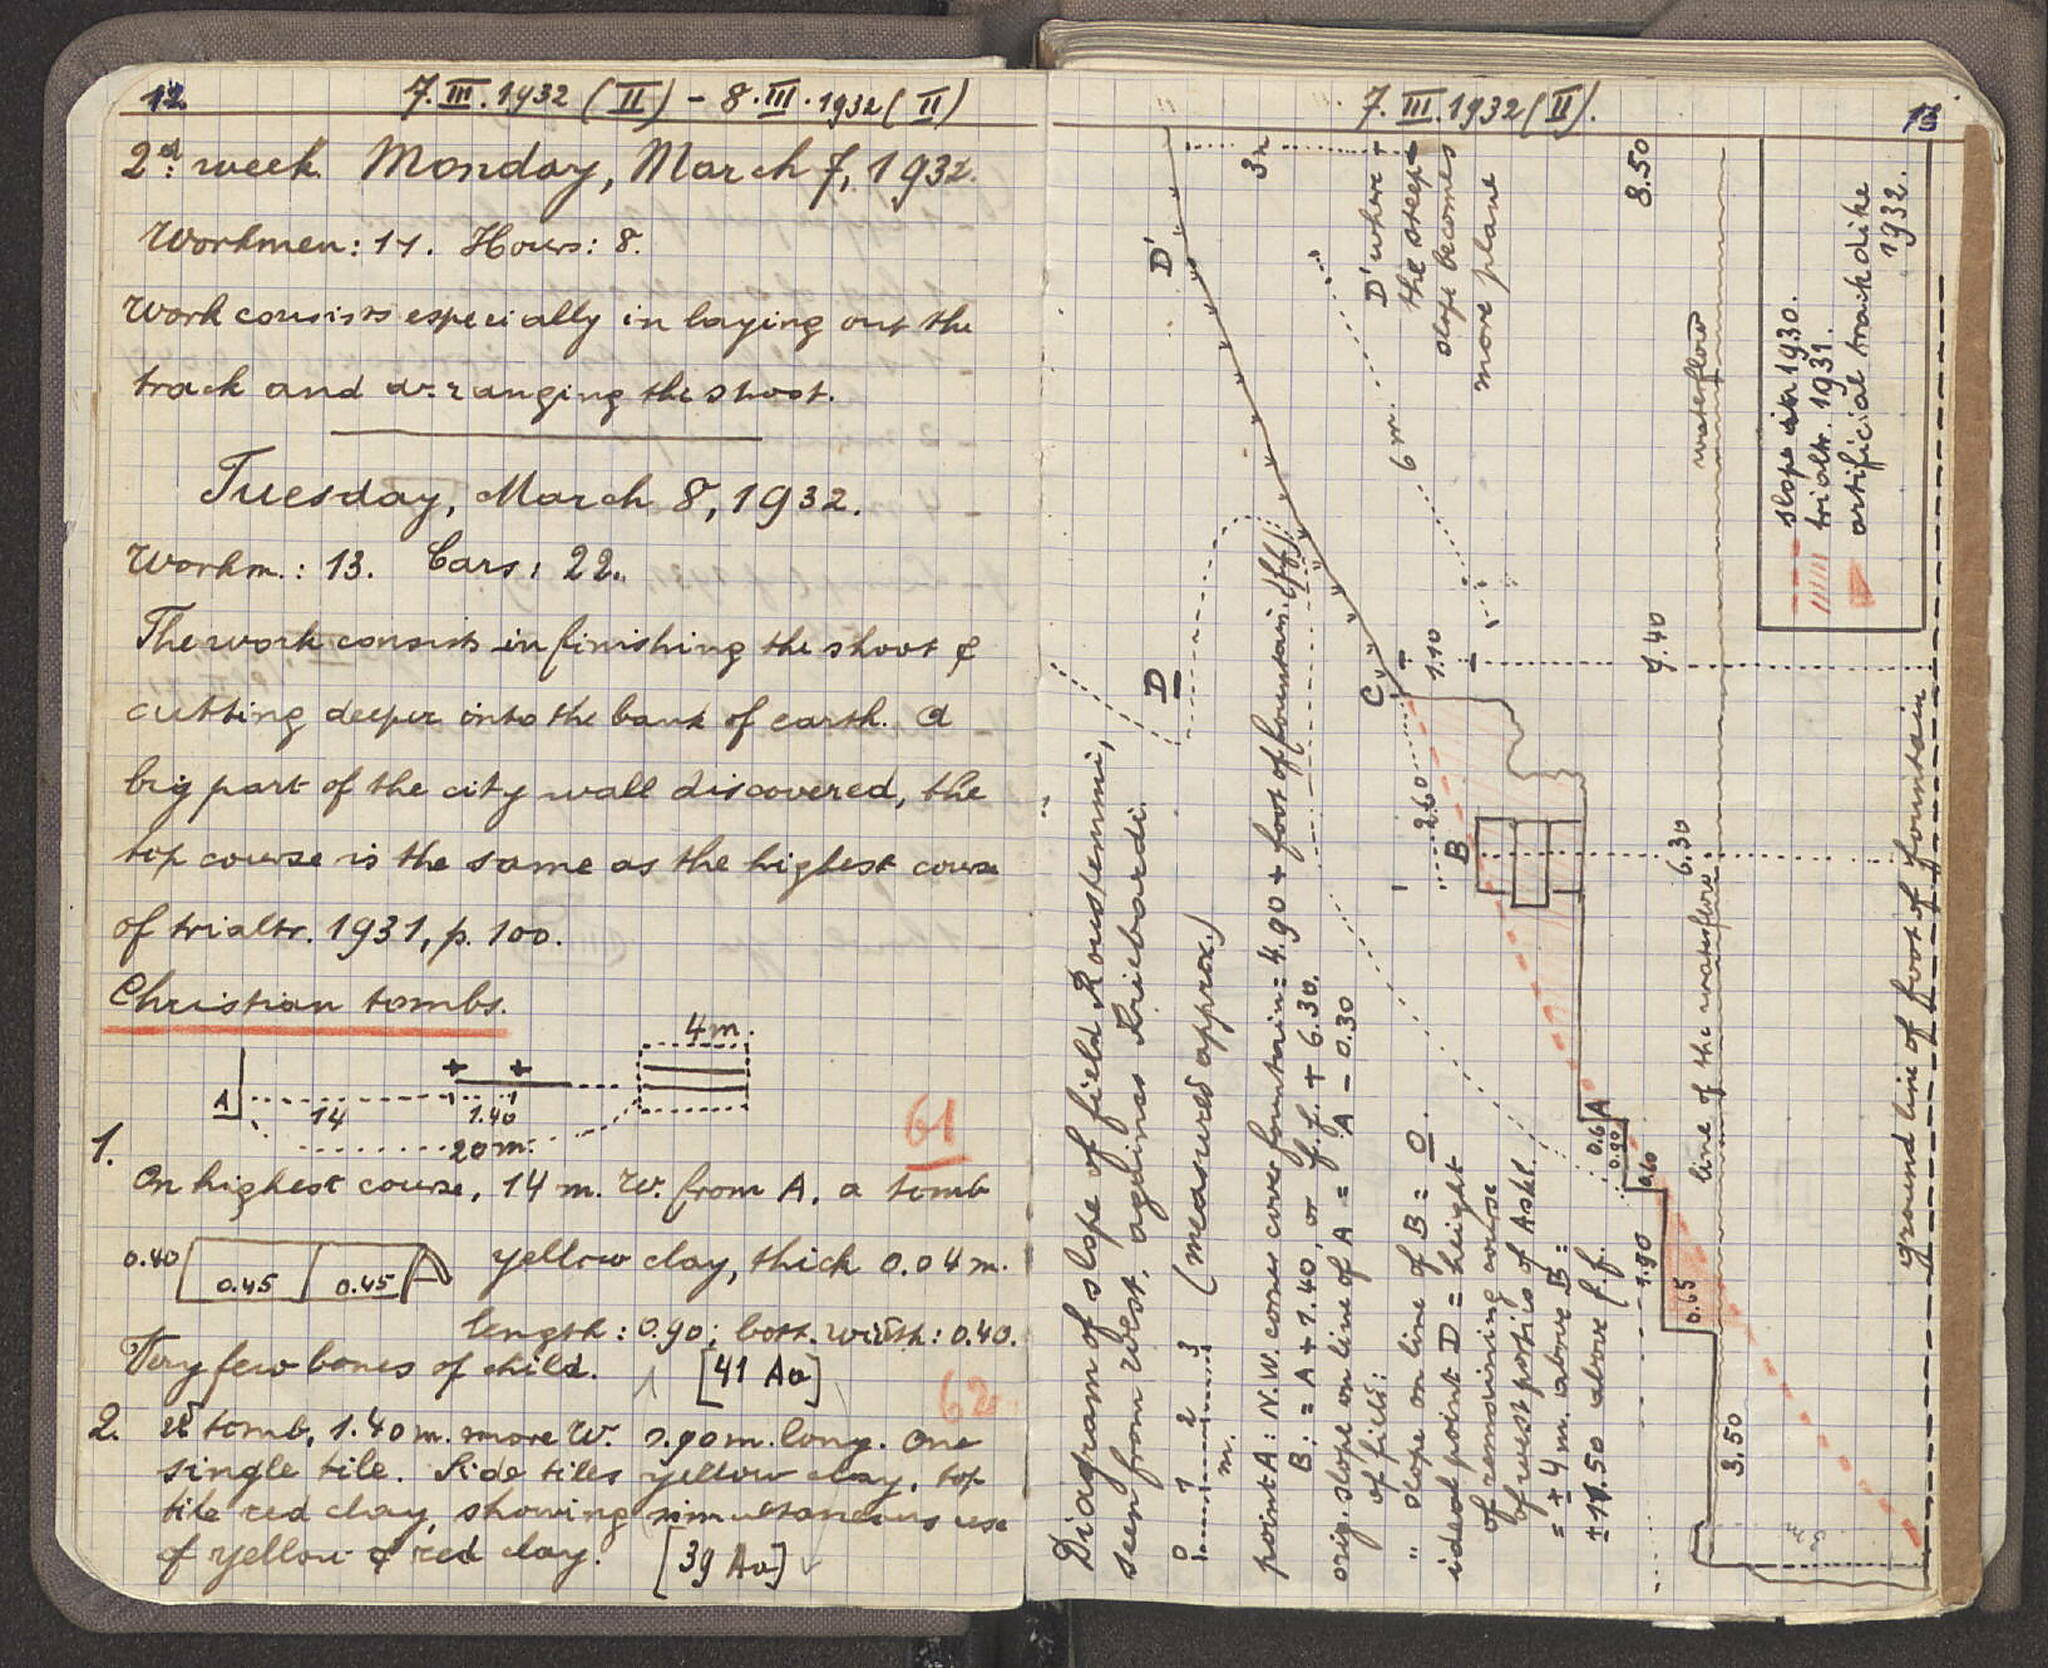 12.
7.III.1932 (II) - 8.III.1932 (II)
2d: week. Monday, March 7, 1932.
Workmen: 11. Hours: 8.
Work consists especially in laying out the
track and arranging the shoot.
Tuesday, March 8, 1932.
Workm.: 13. Cars: 22.
The work consists in finishing the shoot &
cutting deeper into the bank of earth. A
big part of the city wall discovered, the
top course is the same as the highest course
of trialtr. 1931, p. 100.
Christian tombs.
4 m.
A
14
1.40
20 m.
61
1.
On highest course, 14 m. W. from A, a tomb
0.40
0.45
0.45
yellow clay, thick 0.04 m.
length: 0.90; bott. width: 0.40.
Very few bones of child.
[41 Aa]
62
2. tomb, 1.40 m. more W. 0.90 m. long. One
single tile. Side tiles yellow clay, top
tile red clay, showing simultaneous use
of yellow & red clay. [39 Aa]
7.III.1932 (II).
13
Diagram of slope of field Roustemmi,
seen from West, against
(measured approx.)
0 1 2 3
m.
point A: N.W. corner cover fountain: 4.90 + foot of fountain (f.f.).
B: = A + 1.40, or f.f. + 6.30.
orig. slope on line of A = A - 0.30
of field:
" slope on line of B = 0.
ideal point D = height
of remaining course
of west portis of Ashl.
= ± 4 m. above B:
± 11.50 above f.f.
D' where
the steep
slope becomes
more plane
D'
D
C
B
A
6 m.
1.10
2.60
8.50
7.40
6.30
0.60
0.65
1.90
3.50
waterflow
line of the waterflow
ground line of foot of fountain
slope in 1930.
trialtr. 1931.
artificial track dike
1932.